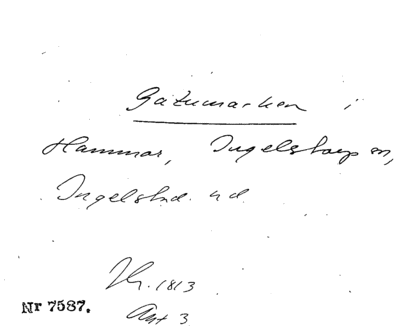 Gatumarken i
Hammar, Ingelstorp sn,
Ingelstad. hd.
Th. 1813
Akt 3
Nr 7587.